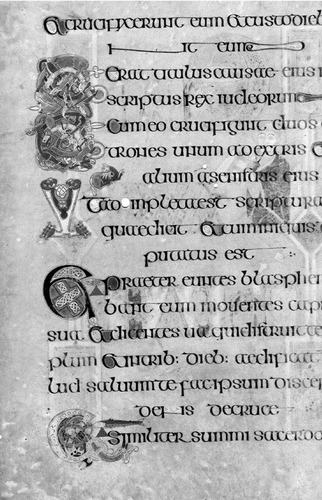 Et crucifixerunt eum et custodieb
nt eum
Erat titulus causae eius i
scriptus rex iudeorum
Et cum eo crucifigunt duos
trones unum a dextris e
alium a senistris eius
Ut ad impleta est scriptura
quae dicit et cum iniquis
putatus est
Et praetereuntes blasphe
bant eum moventes capi
sua et dicentes ua qui distruit te
plum et in trib: dieb: aedificat
lud salvum te fac ipsum discen
de cruce
Similiter summi sacerdo